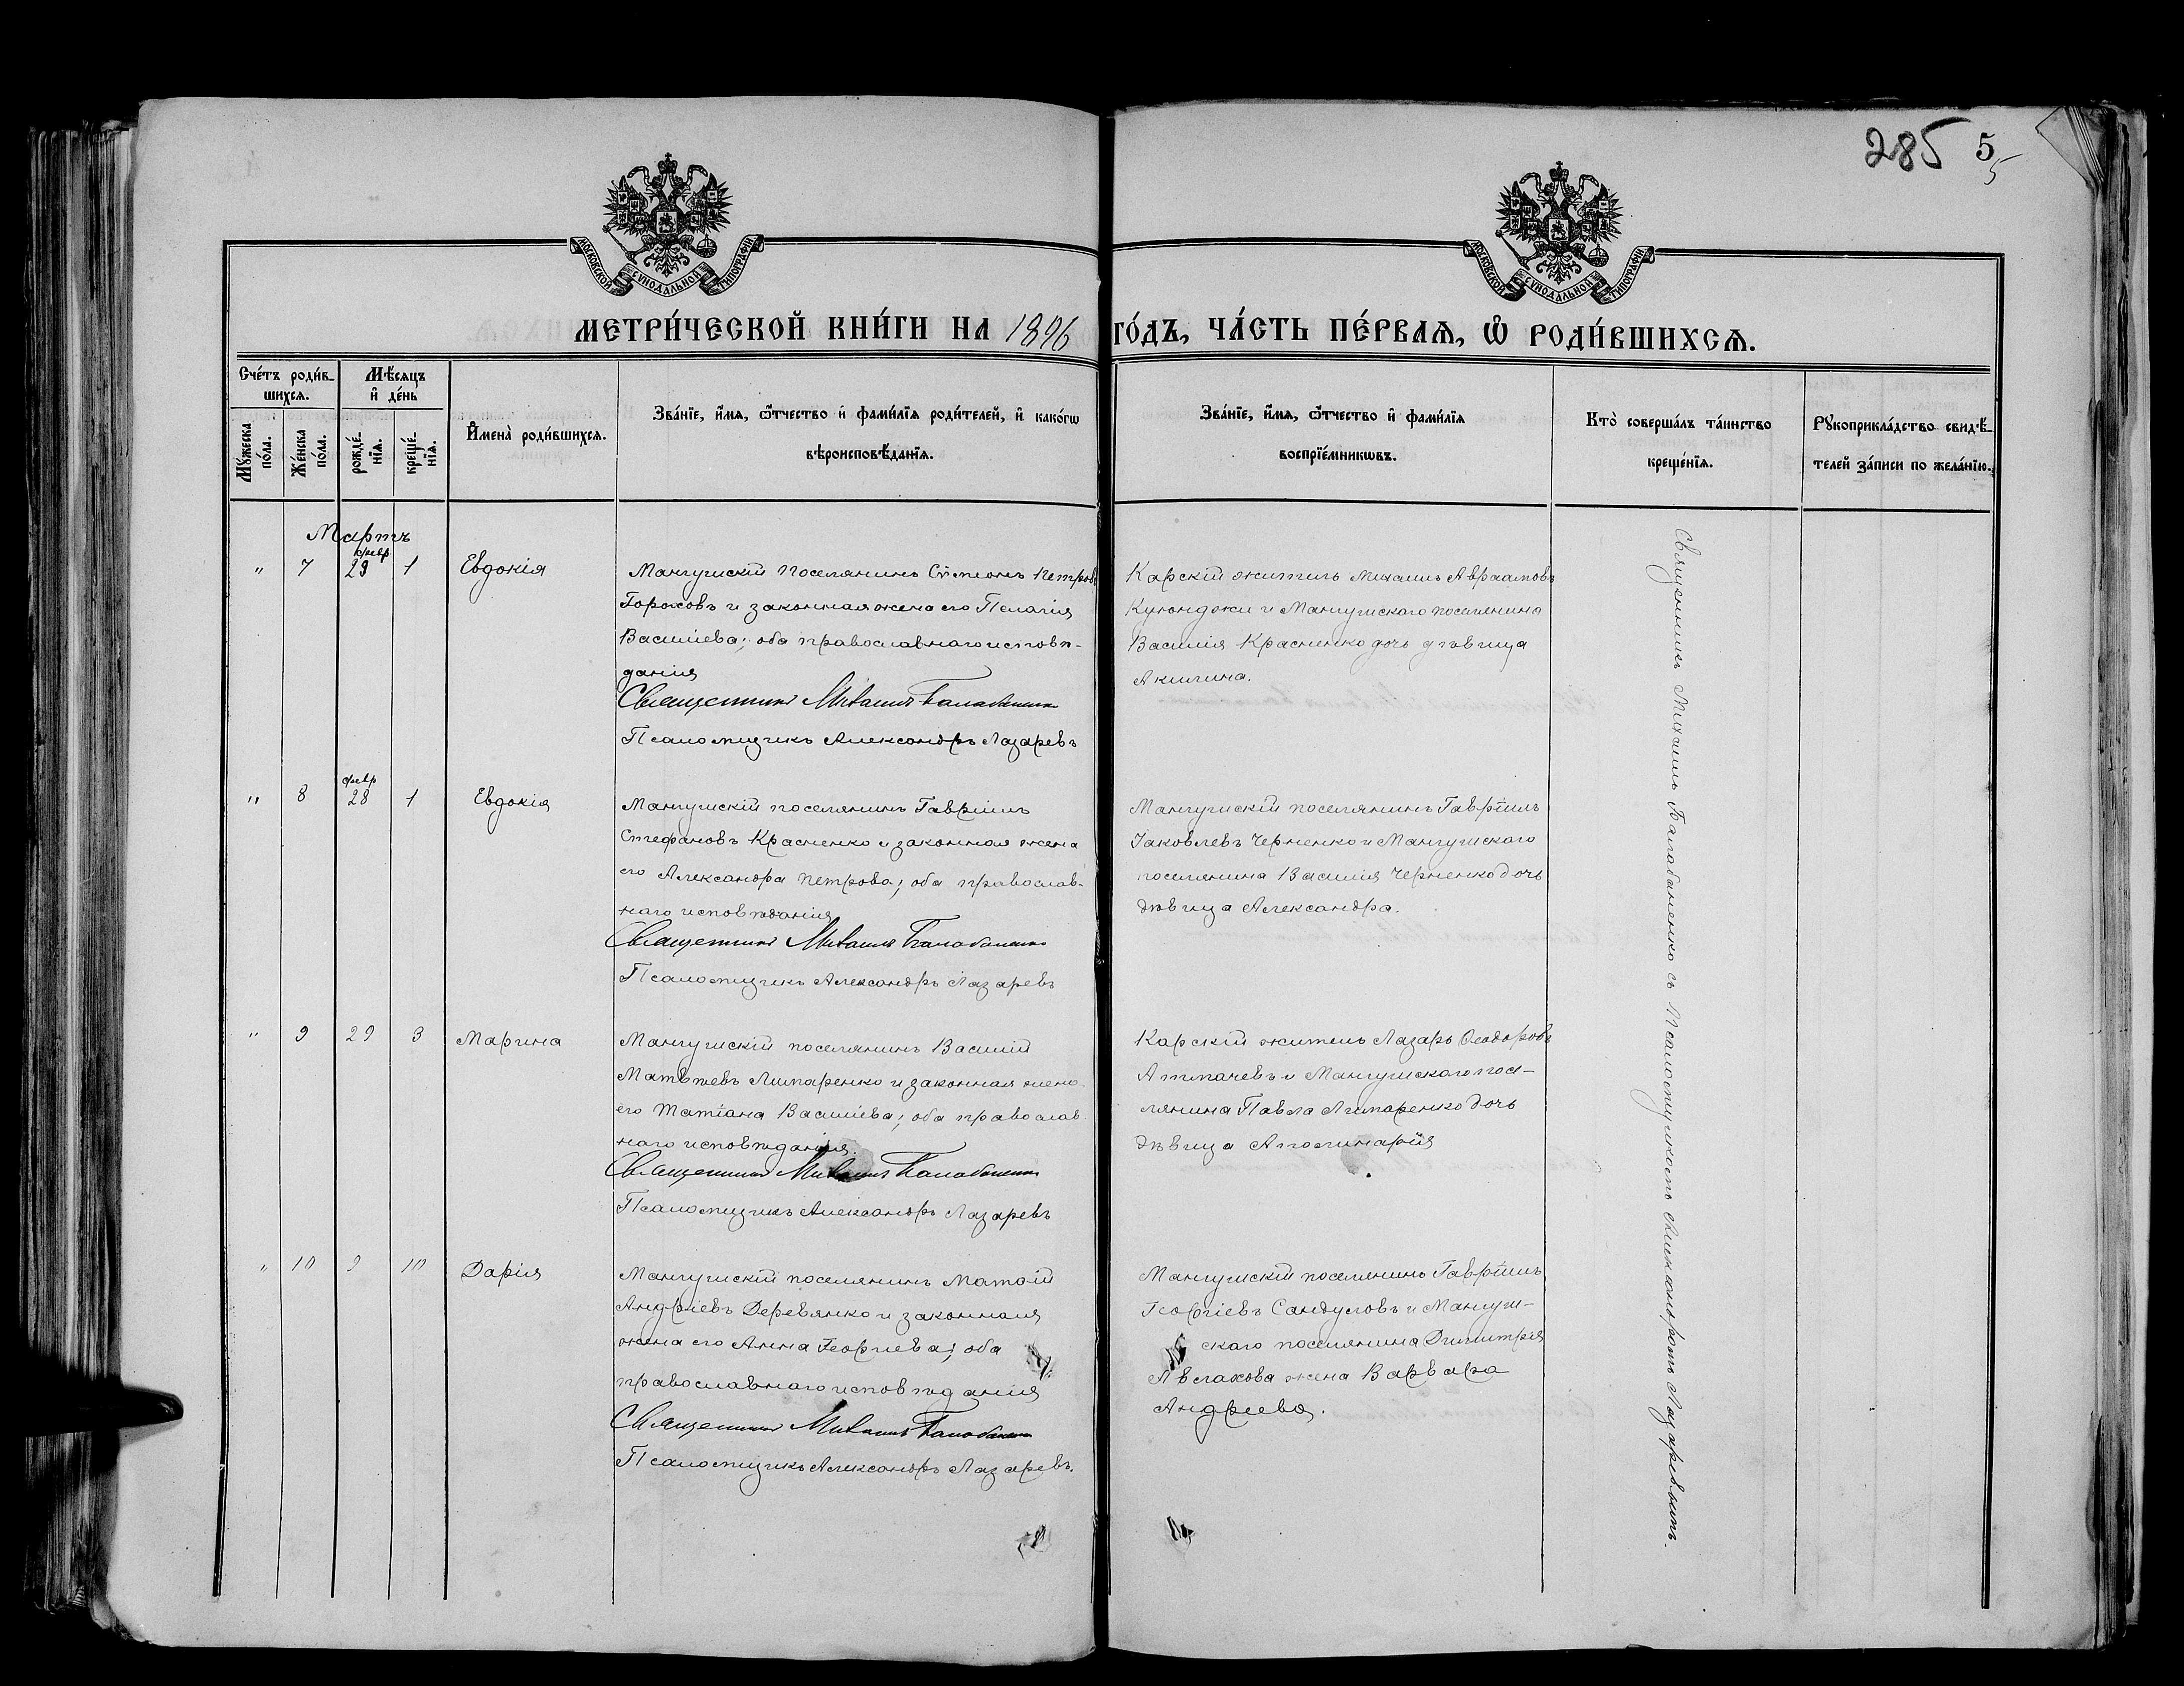 285 5
5
МОСКОВСКОЙ СУНОДАЛЬНОЙ ТИПОГРАФІИ
МОСКОВСКОЙ СУНОДАЛЬНОЙ ТИПОГРАФІИ
МЕТРИ́ЧЕСКОЙ КНИ́ГИ НА 1896 ГО́ДЪ, ЧА́СТЬ ПЕ́РВАѦ, Ѡ҆ РОДИ́ВШИХСѦ.
Сче́тъ роди́в-
шихсѧ.
Мѣ́сѧцъ
и҆ де́нь
Мꙋ́жеска
по́ла.
Же́нска
по́ла.
рожде́-
нїѧ.
креще́-
нїѧ.
И҆мена̀ роди́вшихсѧ.
Зва́нїе, и҆́мѧ, ѻ҆́тчество и҆ фами́лїѧ роди́телей, и҆ како́гѡ
вѣроисповѣ́данїѧ.
Зва́нїе, и҆́мѧ, ѻ҆́тчество и҆ фами́лїѧ
воспрїе́мникѡвъ.
Кто̀ соверша́лъ та́инство
креще́нїѧ.
Рꙋкоприкла́дство свидѣ́-
телей за́писи по жела́нїю.
Мартъ
„ 7 февр 29 1 Евдокія
Мангушскій поселянинъ Сѵмеонъ Петровъ
Гороховъ и законная жена его Пелагія
Василіева; оба православнаго исповѣ-
данія
Священникъ Михаилъ Балабаненко
Псаломщикъ Александръ Лазаревъ
Карскій житель Михаилъ Авраамовъ
Куюнджи и Мангушскаго поселянина
Василія Красненко дочь дѣвица
Акилина.
„ 8 февр 28 1 Евдокія
Мангушскій поселянинъ Гавріилъ
Стефановъ Красненко и законная жена
его Александра Петрова; оба православ-
наго исповѣданія
Священникъ Михаилъ Балабаненко
Псаломщикъ Александръ Лазаревъ
Мангушскій поселянинъ Гавріилъ
Іаковлевъ Черненко и Мангушскаго
поселянина Василія Черненко дочь
дѣвица Александра.
„ 9 29 3 Марина
Мангушскій поселянинъ Василій
Матѳѣевъ Липаренко и законная жена
его Татіана Василіева; оба православ-
наго исповѣданія.
Священникъ Михаилъ Балабаненко
Псаломщикъ Александръ Лазаревъ
Карскій житель Лазарь Ѳеодоровъ
и Мангушскаго посе-
лянина Павла Липаренко дочь
дѣвица Аполинарія
„ 10 9 10 Дарія
Мангушскій поселянинъ Матѳій
Андріевъ Деревянко и законная
жена его Анна Георгіева; оба
православнаго исповѣданія
Священникъ Михаилъ Балабаненко
Псаломщикъ Александръ Лазаревъ.
Мангушскій поселянинъ Гавріилъ
Георгіевъ Сандуловъ и Мангуш-
скаго поселянина Димитрія
Авлахова жена Варвара
Андріева.
Священникъ Михаилъ Балабаненко съ Псаломщикомъ Александромъ Лазаревымъ.